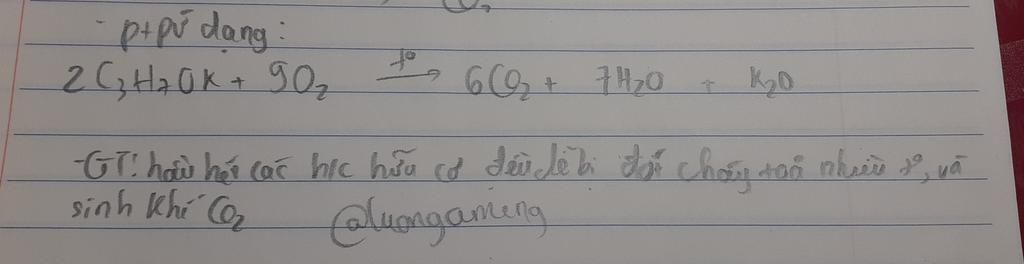 - p+pứ dạng:
2C₃H₇OK + 9O₂ —t°→ 6CO₂ + 7H₂O + K₂O
-GT: hầu hết các h/c hữu cơ đều dễ bị đốt cháy toả nhiều t°, và
sinh khí CO₂ @luongameng